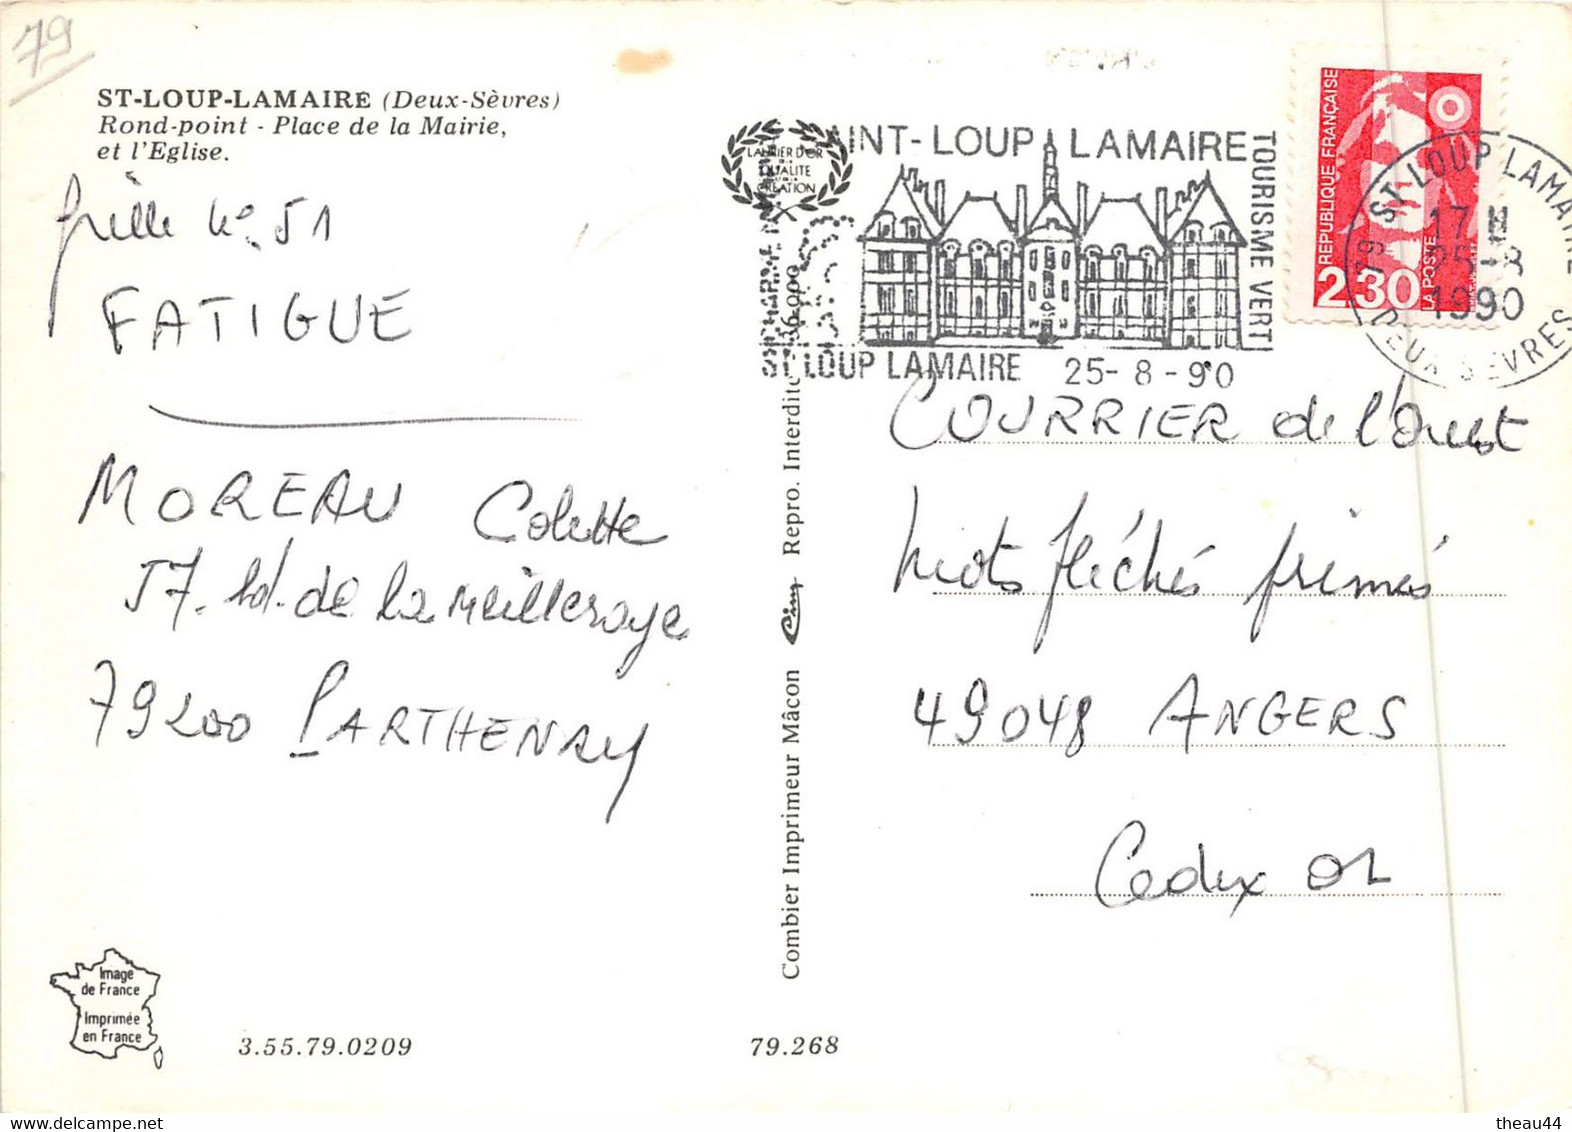 79
ST-LOUP-LAMAIRE (Deux-Sèvres)
Rond-point - Place de la Mairie,
et l'Eglise.
grille n° 51
FATIGUE
MOREAU Colette
57. bd. de la Meilleraye
79200 PARTHENAY
Image
de France
Imprimée
en France
3.55.79.0209
79.268
Combier Imprimeur Mâcon Cim Repro. Interdite
LAURIER D'OR
QUALITE
CREATION
AINT-LOUP LAMAIRE
TOURISME VERT
ST LOUP LAMAIRE 25-8-90
REPUBLIQUE FRANÇAISE
2,30
LA POSTE
79 ST LOUP LAMAIRE
17 H
25-8
1990
DEUX-SEVRES
COURRIER de l'Ouest
mots fléchés primés
49048 ANGERS
Cedex 01
theau44